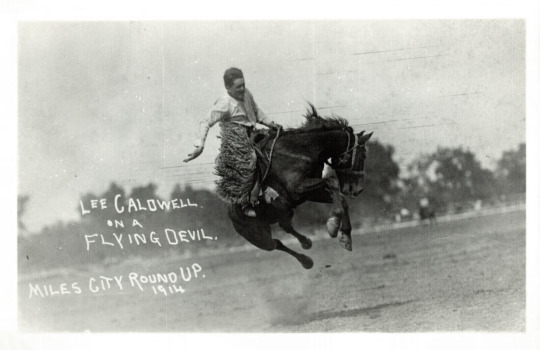 LEE CALDWELL
ON A
FLYING DEVIL.
MILES CITY ROUND UP.
1914